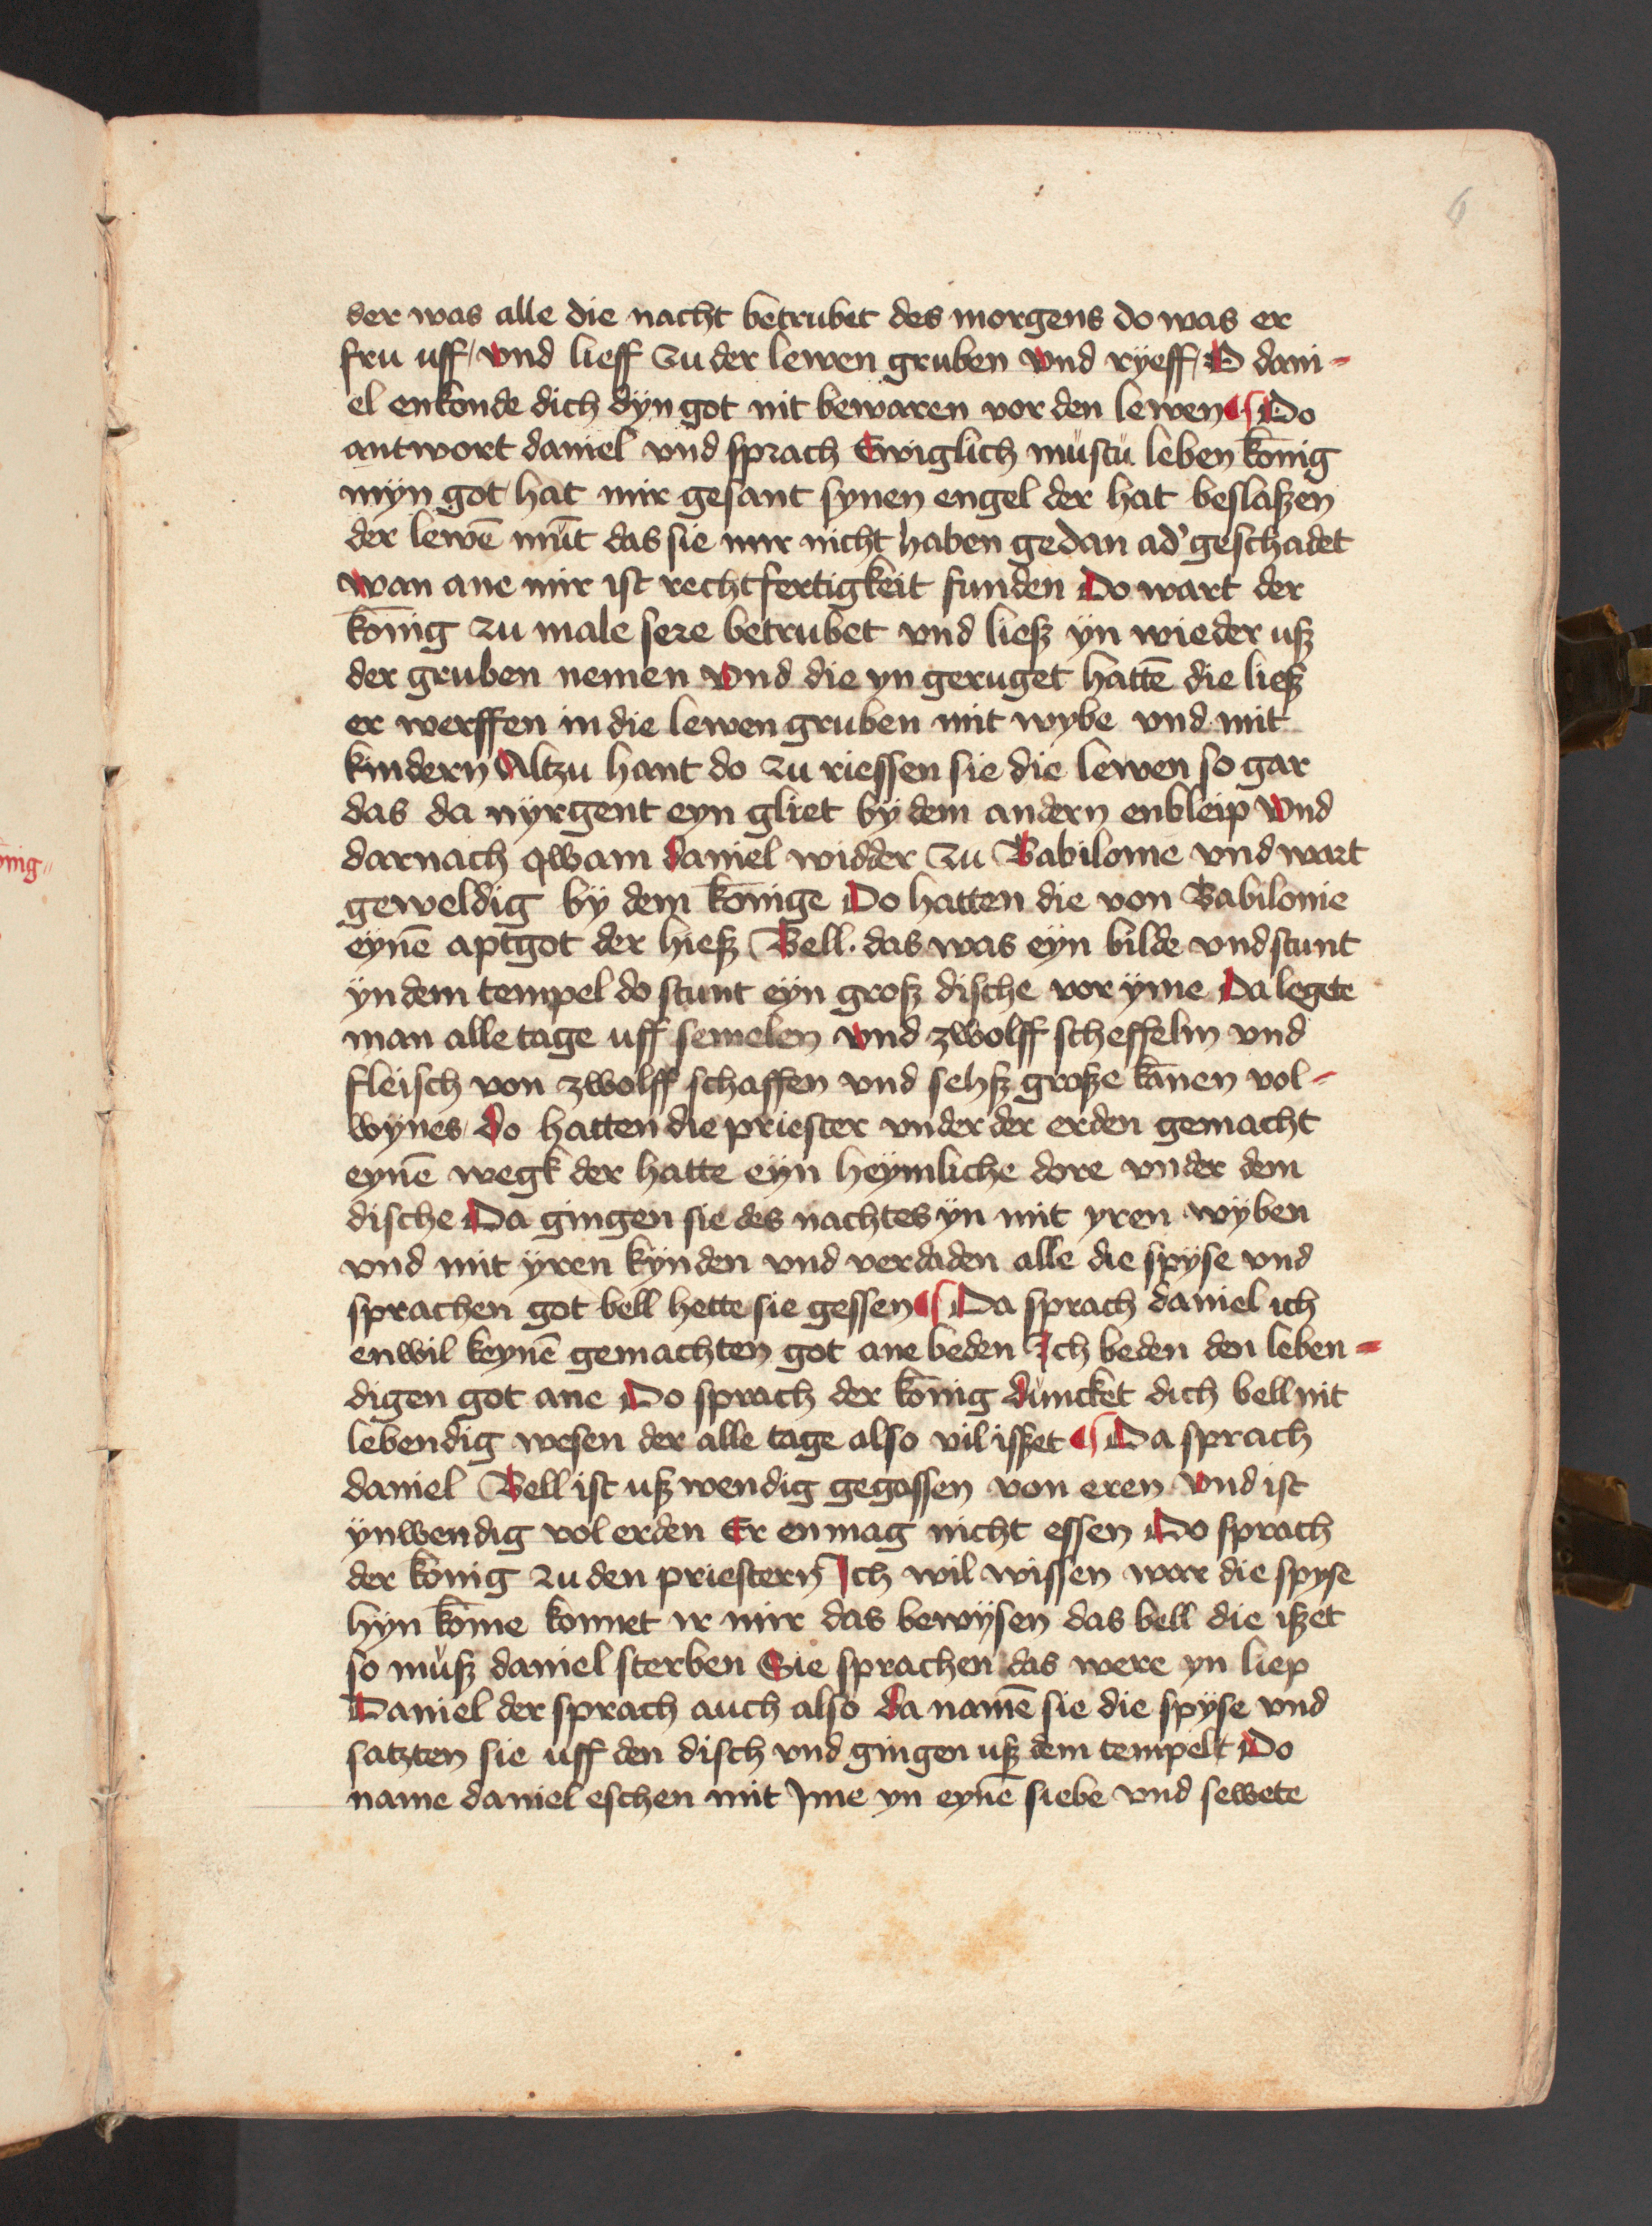 6
der was alle die nacht betrubet des morgens do was er
fru uff / vnd lieff zu der lewen gruben vnd rÿeff / O dani=
el enkonde dich dÿn got nit bewaren vor den lewen ¶ Do
antwort daniel vnd sprach Ewiglich mustu leben kōnig
mÿn got hat mir gesant synen engel der hat beslaßen
der lewē mūt das sie mir nicht haben gedan ad' geschadet
wan ane mir ist rechtfertigkeit funden Do wart der
kōnig zu male sere betrubet vnd ließ ÿn wieder uß
der gruben nemen vnd die yn geruget hattē die ließ
er werffen in die lewen gruben mit wybe vnd mit
kindern Altzu hant do zu riessen sie die lewen so gar
das da nÿrgent eyn gliet bÿ dem andern enbleip vnd
darnach qwam daniel widder zu Babilonie vnd wart
geweldig bÿ dem kōnige Do hatten die von Babilonie
eÿnē aptgot der hieß Bell · das was eÿn bilde vnd stunt
ÿn dem tempel do stunt eÿn groß dische vor ÿme Da legete
man alle tage uff semelen vnd zwolff scheffelin vnd
fleisch von zwolff schaffen vnd sehß große kānen vol=
wÿnes Do hatten die priester vnder der erden gemacht
eynē wegk der hatte eÿn heÿmliche dore vnder dem
dische Da gingen sie des nachtes ÿn mit yren wÿben
vnd mit ÿren kÿnden vnd verdaden alle die spÿse vnd
sprachen got bell hette sie gessen ¶ Da sprach daniel ich
enwil keynē gemachten got ane beden Ich beden den leben=
digen got ane Do sprach der kōnig duncket dich bell nit
lebendig wesen der alle tage also vil isset ¶ Da sprach
daniel Bell ist uß wendig gegossen von eren vnd ist
ÿnwendig vol erden Er enmag nicht essen Do sprach
der kōnig zu den priestern Ich wil wissen war die spyse
hÿn kōme konnet ir mir das bewÿsen das bell die ißet
so muß daniel sterben Sie sprachen das were yn liep
Daniel der sprach auch also da namē sie die spÿse vnd
satzten sie uff den disch vnd gingen uß dem tempelt Do
name daniel eschen mit Jme yn eynē siebe vnd sewete